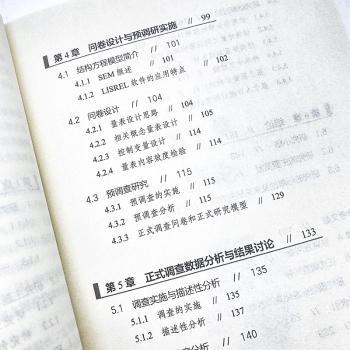 第4章 问卷设计与预调研实施 // 99
4.1 结构方程模型简介 // 101
4.1.1 SEM概述 // 101
4.1.2 LISREL软件的应用特点 // 102
4.2 问卷设计 // 104
4.2.1 量表设计思路 // 104
4.2.2 相关概念量表设计 // 104
4.2.3 控制变量设计 // 114
4.2.4 量表内容效度检验 // 114
4.3 预调查研究 // 115
4.3.1 预调查的实施 // 115
4.3.2 预调查分析 // 115
4.3.3 正式调查问卷和正式研究模型 // 129
第5章 正式调查数据分析与结果讨论 // 133
5.1 调查实施与描述性分析 // 135
5.1.1 调查的实施 // 135
5.1.2 描述性分析 // 137
// 140